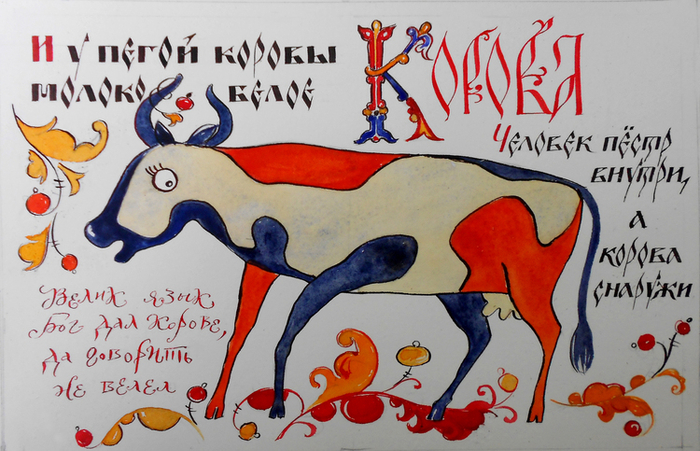 И у пегой коровы
молоко белое
Корова
Человек пёстр
внутри,
а
корова
снаружи
Велик язык
Бог дал корове,
да говорить
не велел